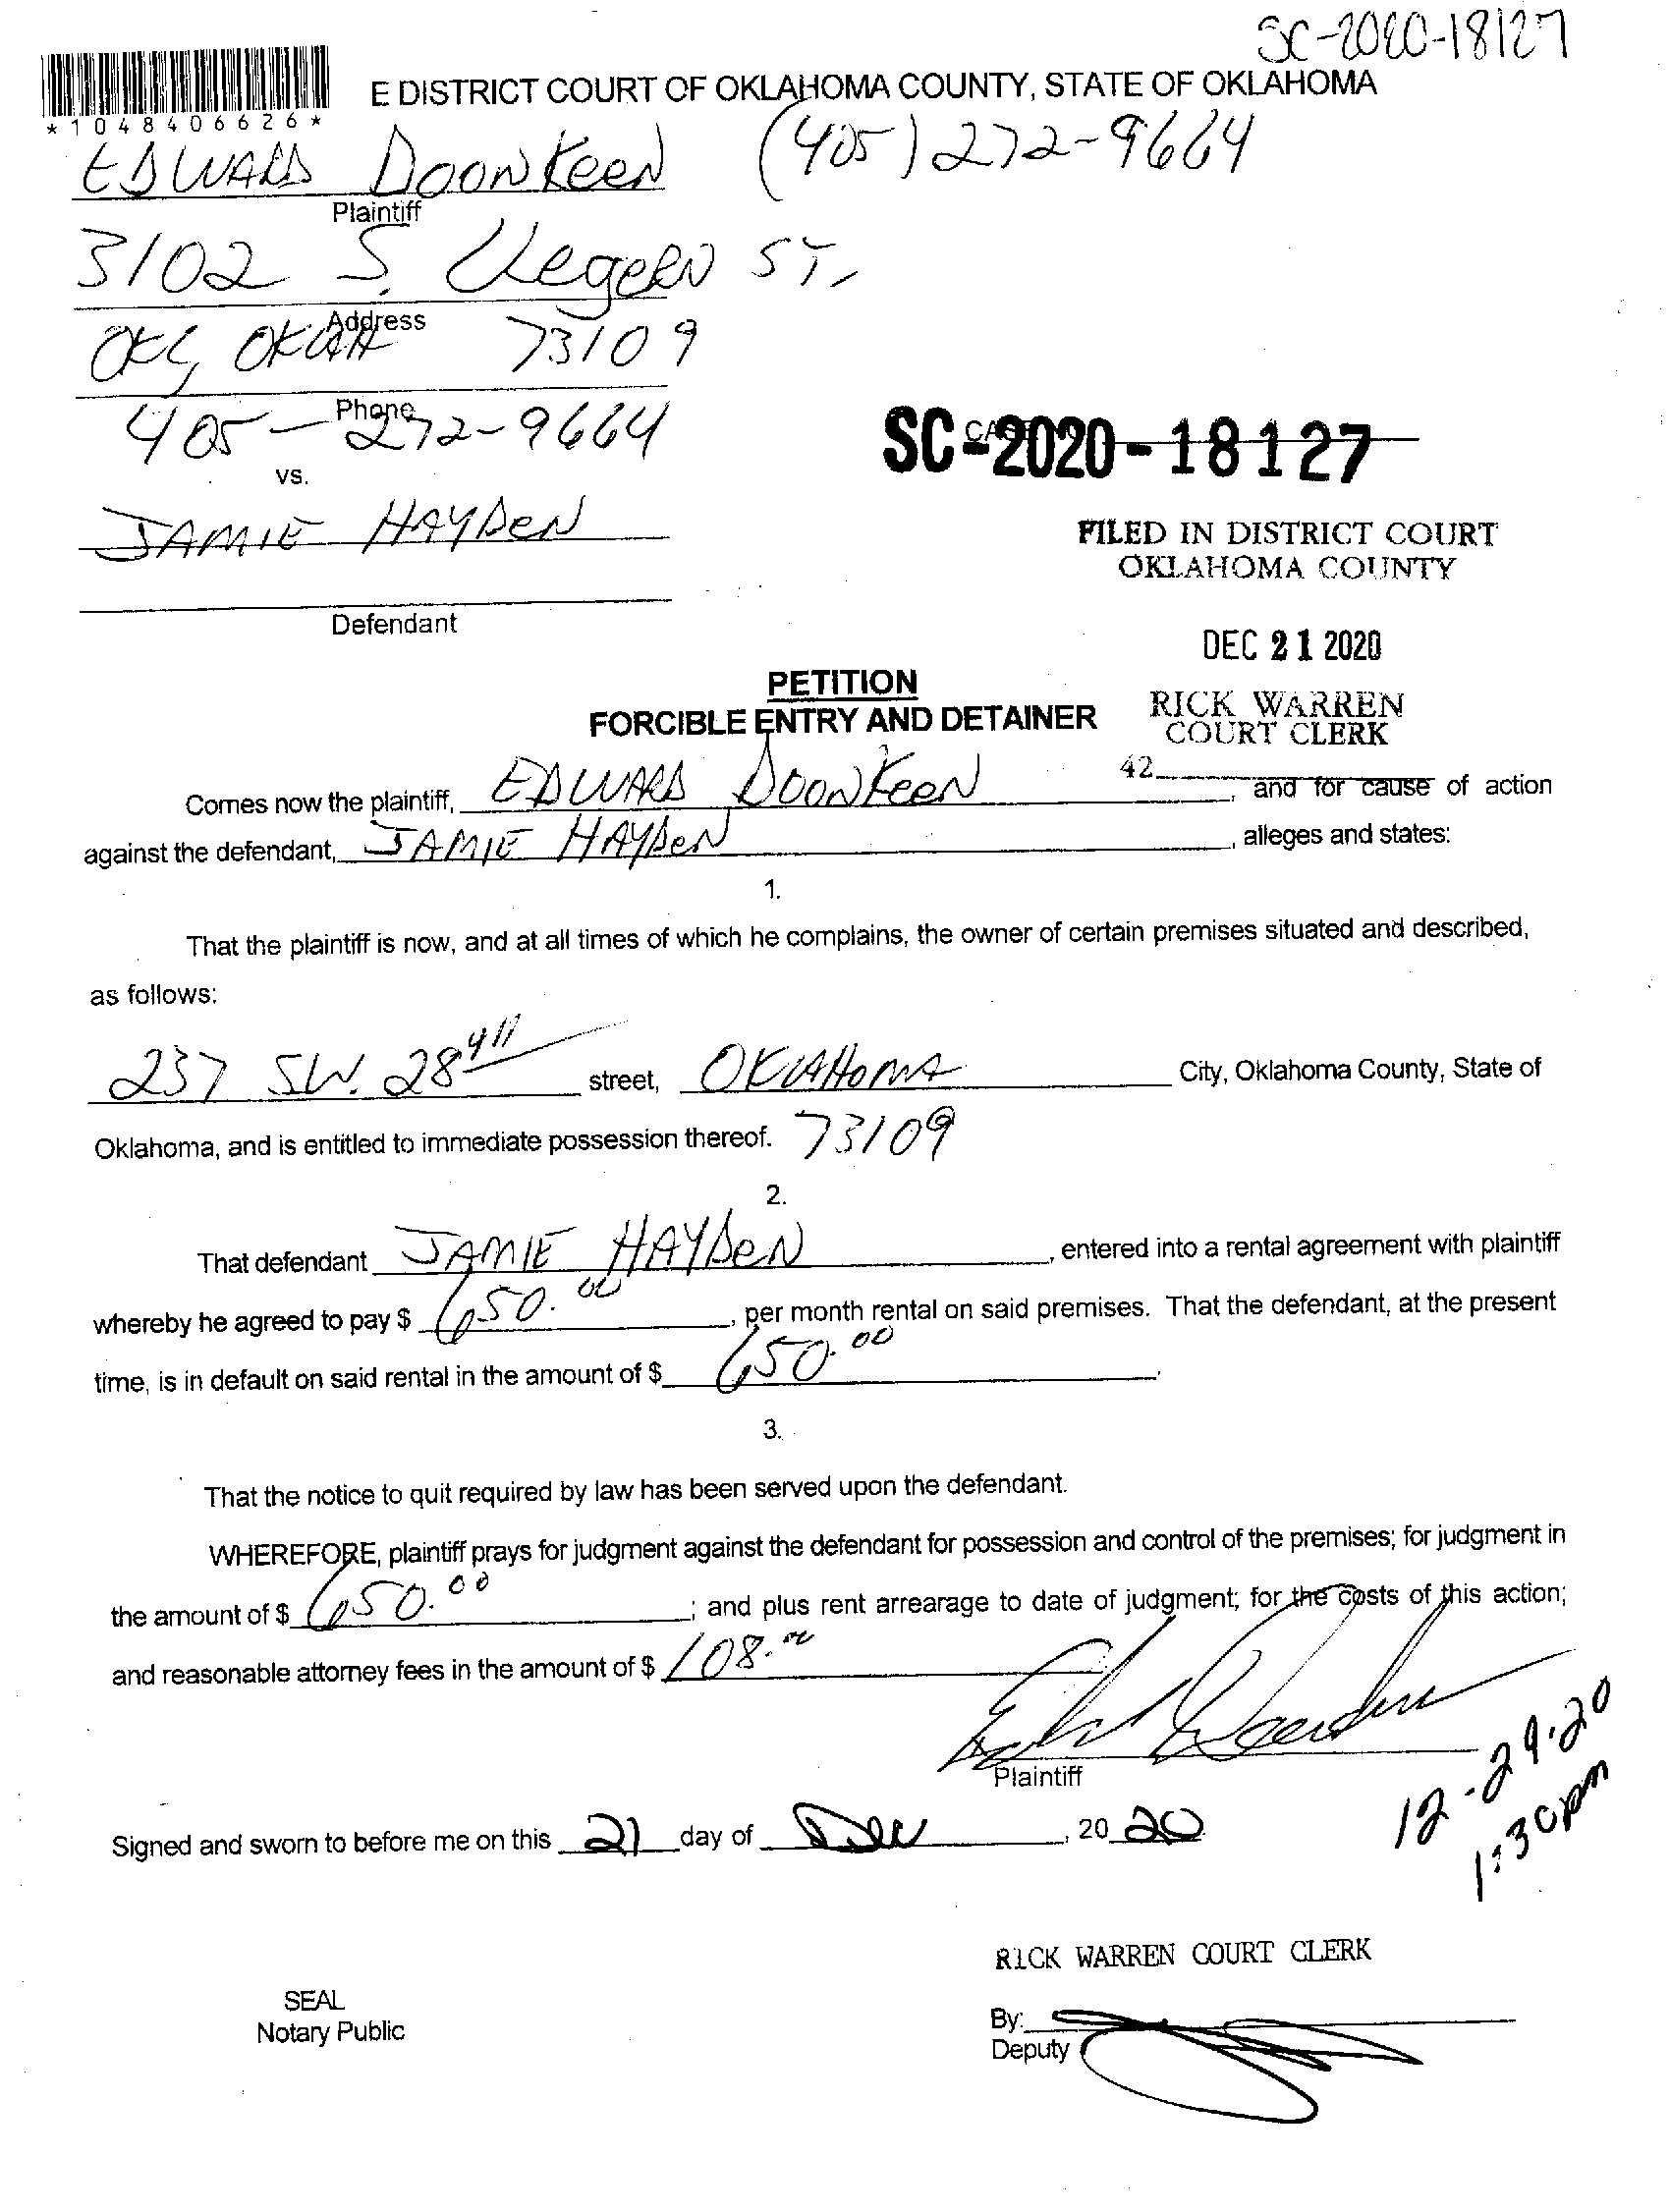 SC-2020-18127
E DISTRICT COURT OF OKLAHOMA COUNTY, STATE OF OKLAHOMA
*1048406626*
EDWARD DOONKEEN (405) 272-9664
Plaintiff
3102 S. ST.
Address
OKC, OKLA 73109
Phone
405-272-9664
SC-2020-18127
vs.
JAMIE HAYDEN
FILED IN DISTRICT COURT
OKLAHOMA COUNTY
Defendant
DEC 21 2020
PETITION
RICK WARREN
FORCIBLE ENTRY AND DETAINER
COURT CLERK
42
Comes now the plaintiff, EDWARD DOONKEEN, and for cause of action
against the defendant, JAMIE HAYDEN, alleges and states:
1.
That the plaintiff is now, and at all times of which he complains, the owner of certain premises situated and described,
as follows:
237 SW. 28 street, OKLAHOMA City, Oklahoma County, State of
Oklahoma, and is entitled to immediate possession thereof. 73109
2.
That defendant JAMIE HAYDEN, entered into a rental agreement with plaintiff
whereby he agreed to pay $ 650.00, per month rental on said premises. That the defendant, at the present
time, is in default on said rental in the amount of $ 650.00.
3.
That the notice to quit required by law has been served upon the defendant.
WHEREFORE, plaintiff prays for judgment against the defendant for possession and control of the premises; for judgment in
the amount of $ 650.00; and plus rent arrearage to date of judgment; for the costs of this action;
and reasonable attorney fees in the amount of $ 108.00
Plaintiff
12-29-20
1:30pm
Signed and sworn to before me on this 21 day of Dec, 20 20
RICK WARREN COURT CLERK
SEAL
Notary Public
By:
Deputy